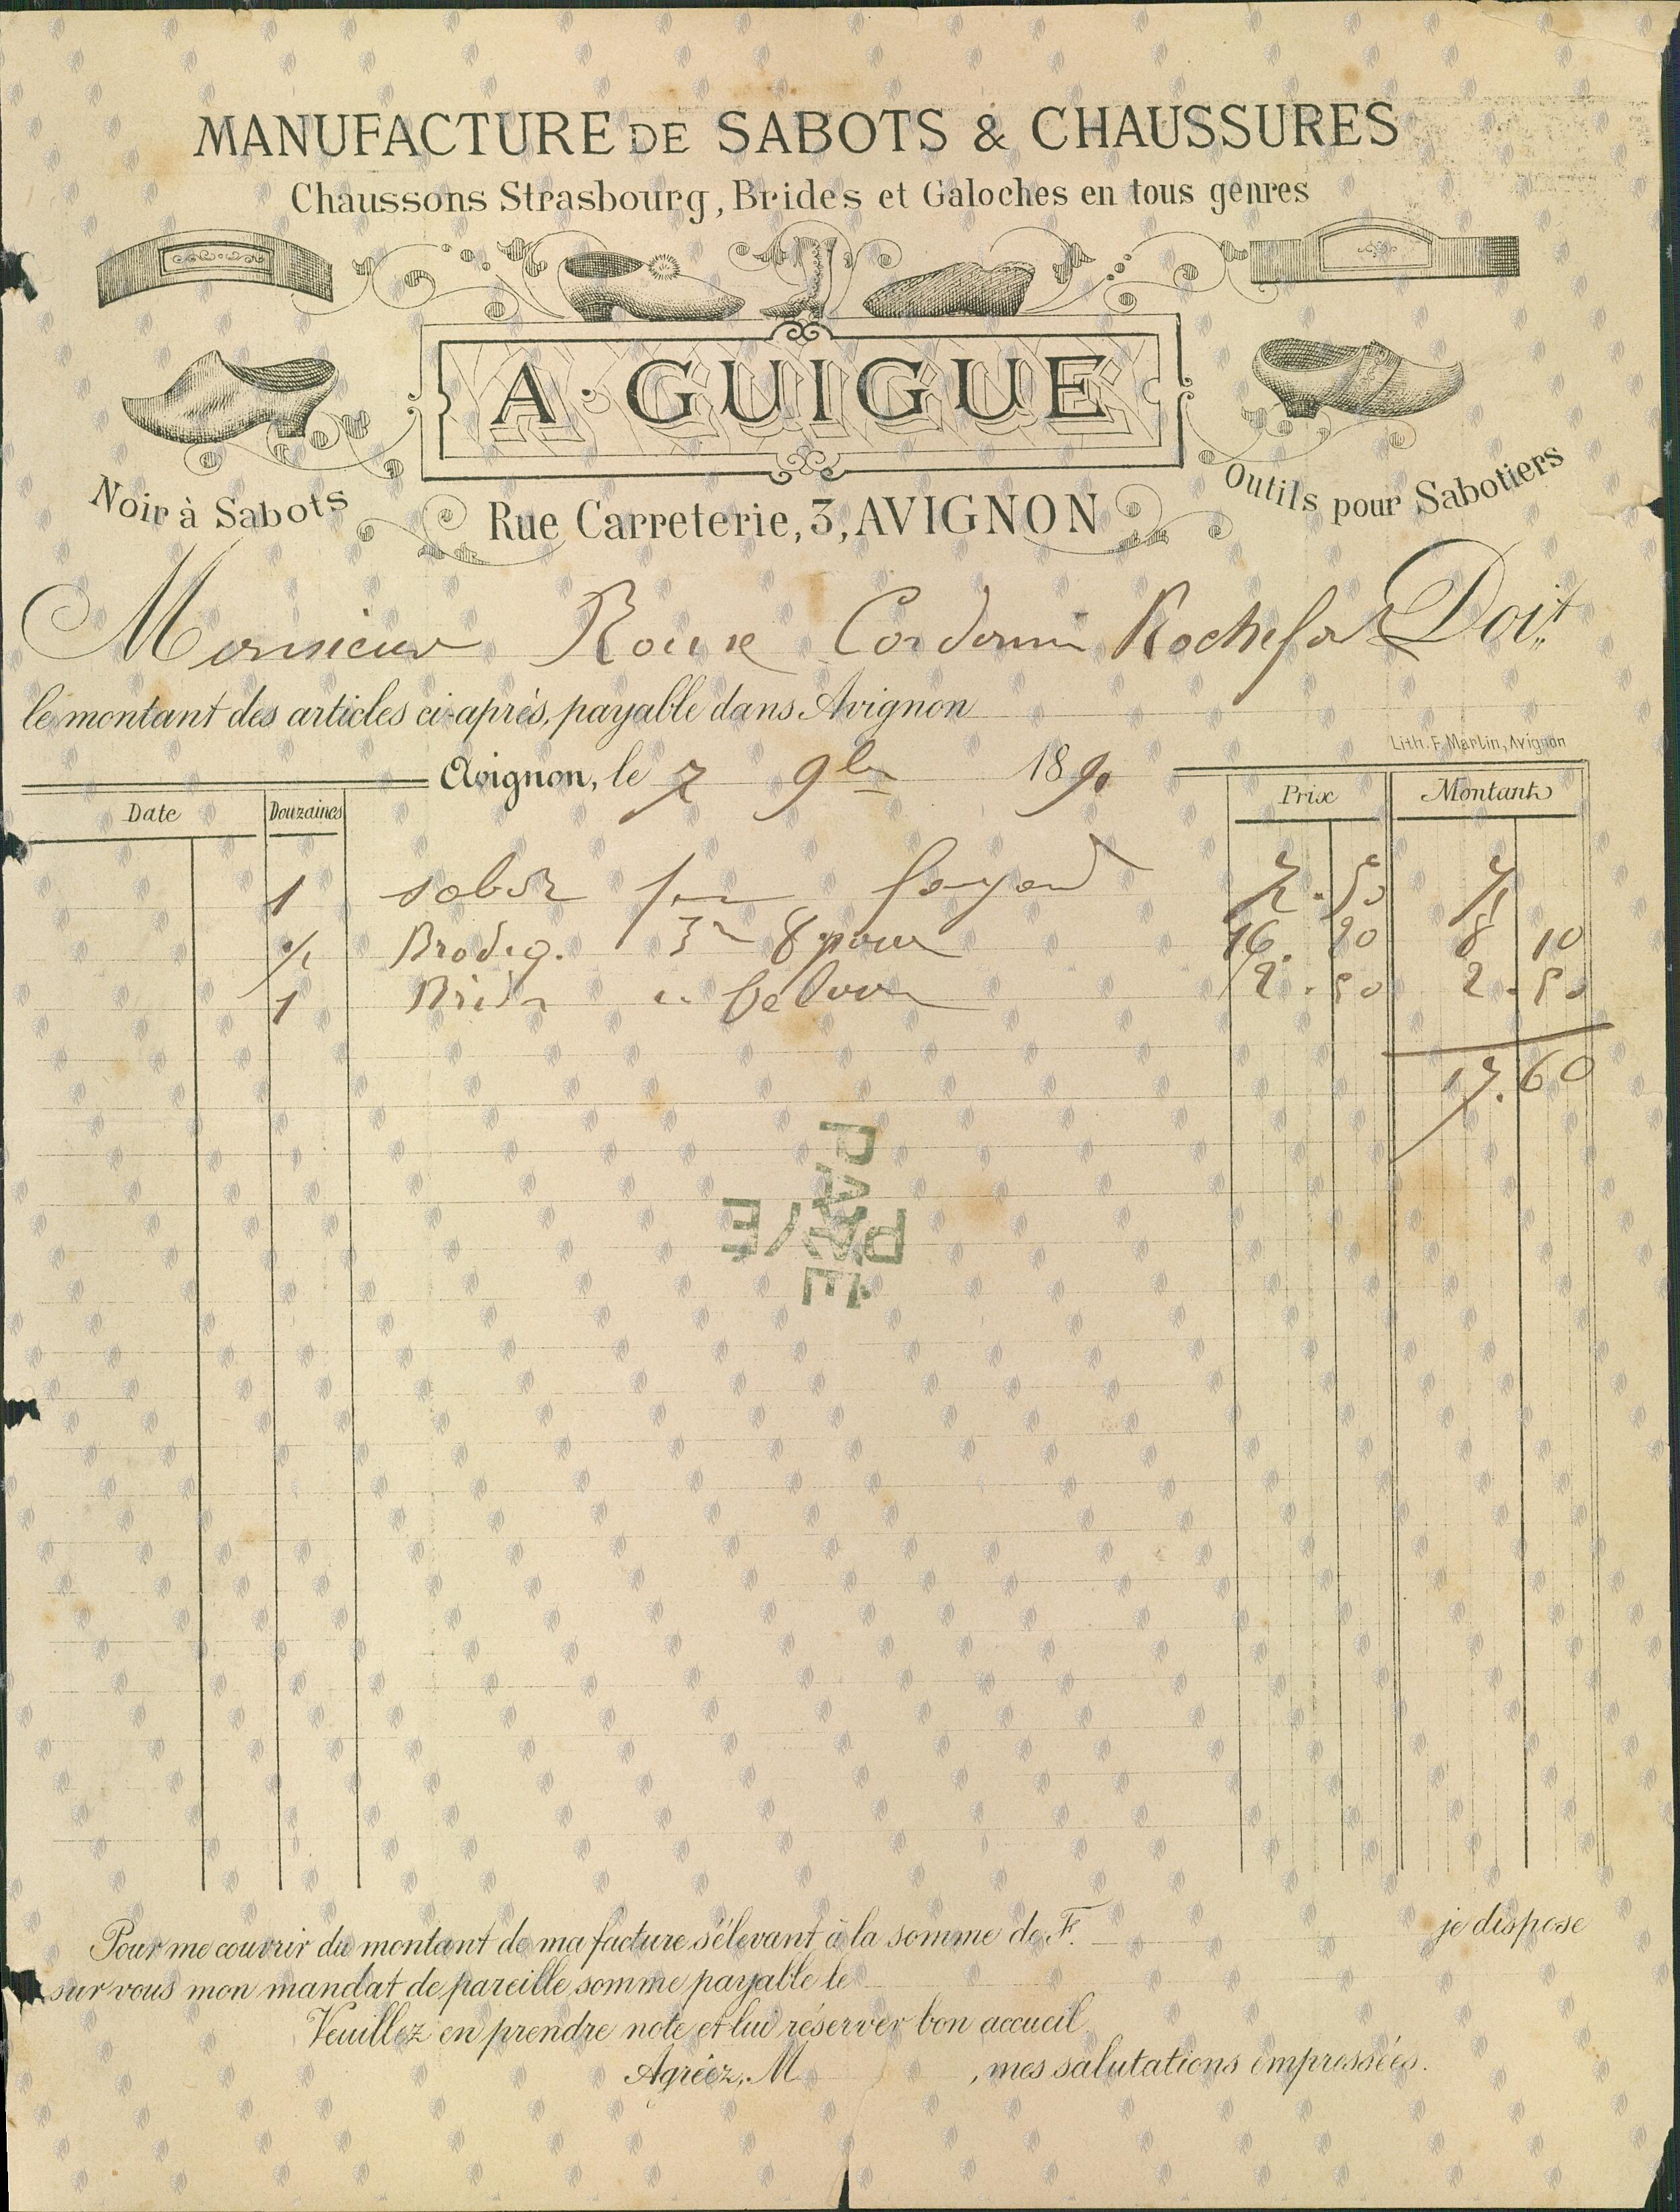 MANUFACTURE DE SABOTS & CHAUSSURES
Chaussons Strasbourg, Brides et Galoches en tous genres
A. GUIGUE
Noir à Sabots
Outils pour Sabotiers
Rue Carreterie, 3, AVIGNON
Monsieur Roux Cordonnier Rochefort Doit
le montant des articles ci-après, payable dans Avignon
Lith. F. Martin, Avignon
Avignon, le 7 9bre 1890
Date Douzaines Prix Montant
1 sabots fayard 7.50 7
½ Brodeq. 8 pour 16.20 8 10
1 Brides 2.50 2.50
17.60
PAYÉ
PAYÉ
Pour me couvrir du montant de ma facture s'élevant à la somme de F. je dispose
sur vous mon mandat de pareille somme payable le
Veuillez en prendre note et lui réserver bon accueil.
Agréez, M , mes salutations empressées.